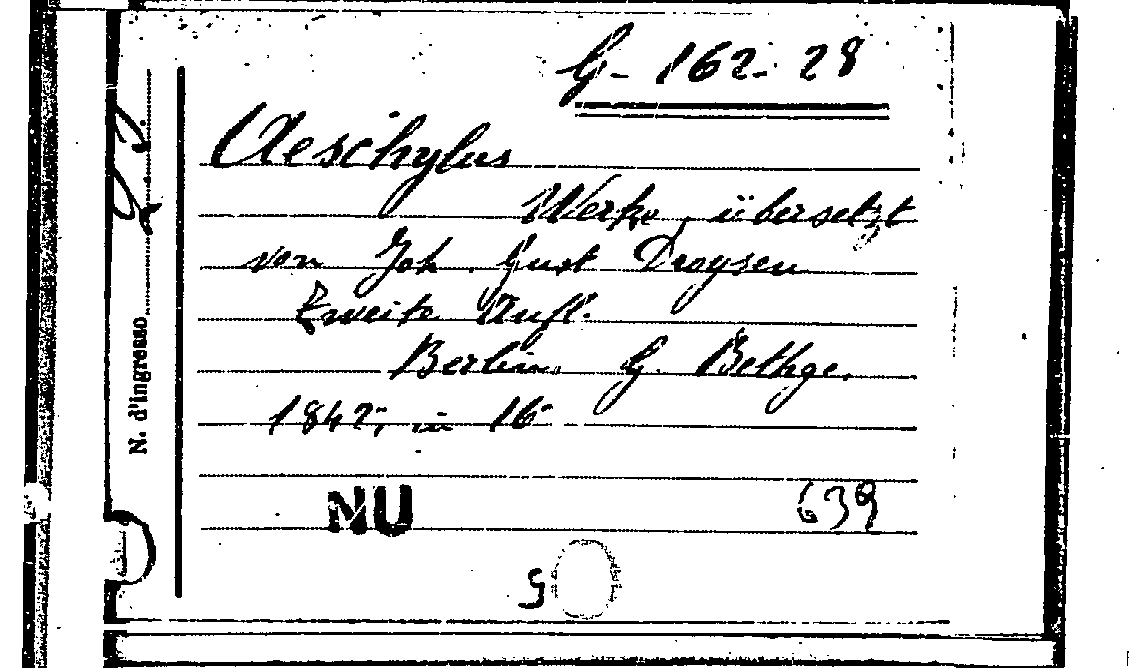 G-162-28
Aeschylus
Werke, übersetzt
von Joh. Gust Droysen
Zweite Aufl.
Berlin, G. Bethge.
1842, in 16°
NU
639
9
N. d'ingresso